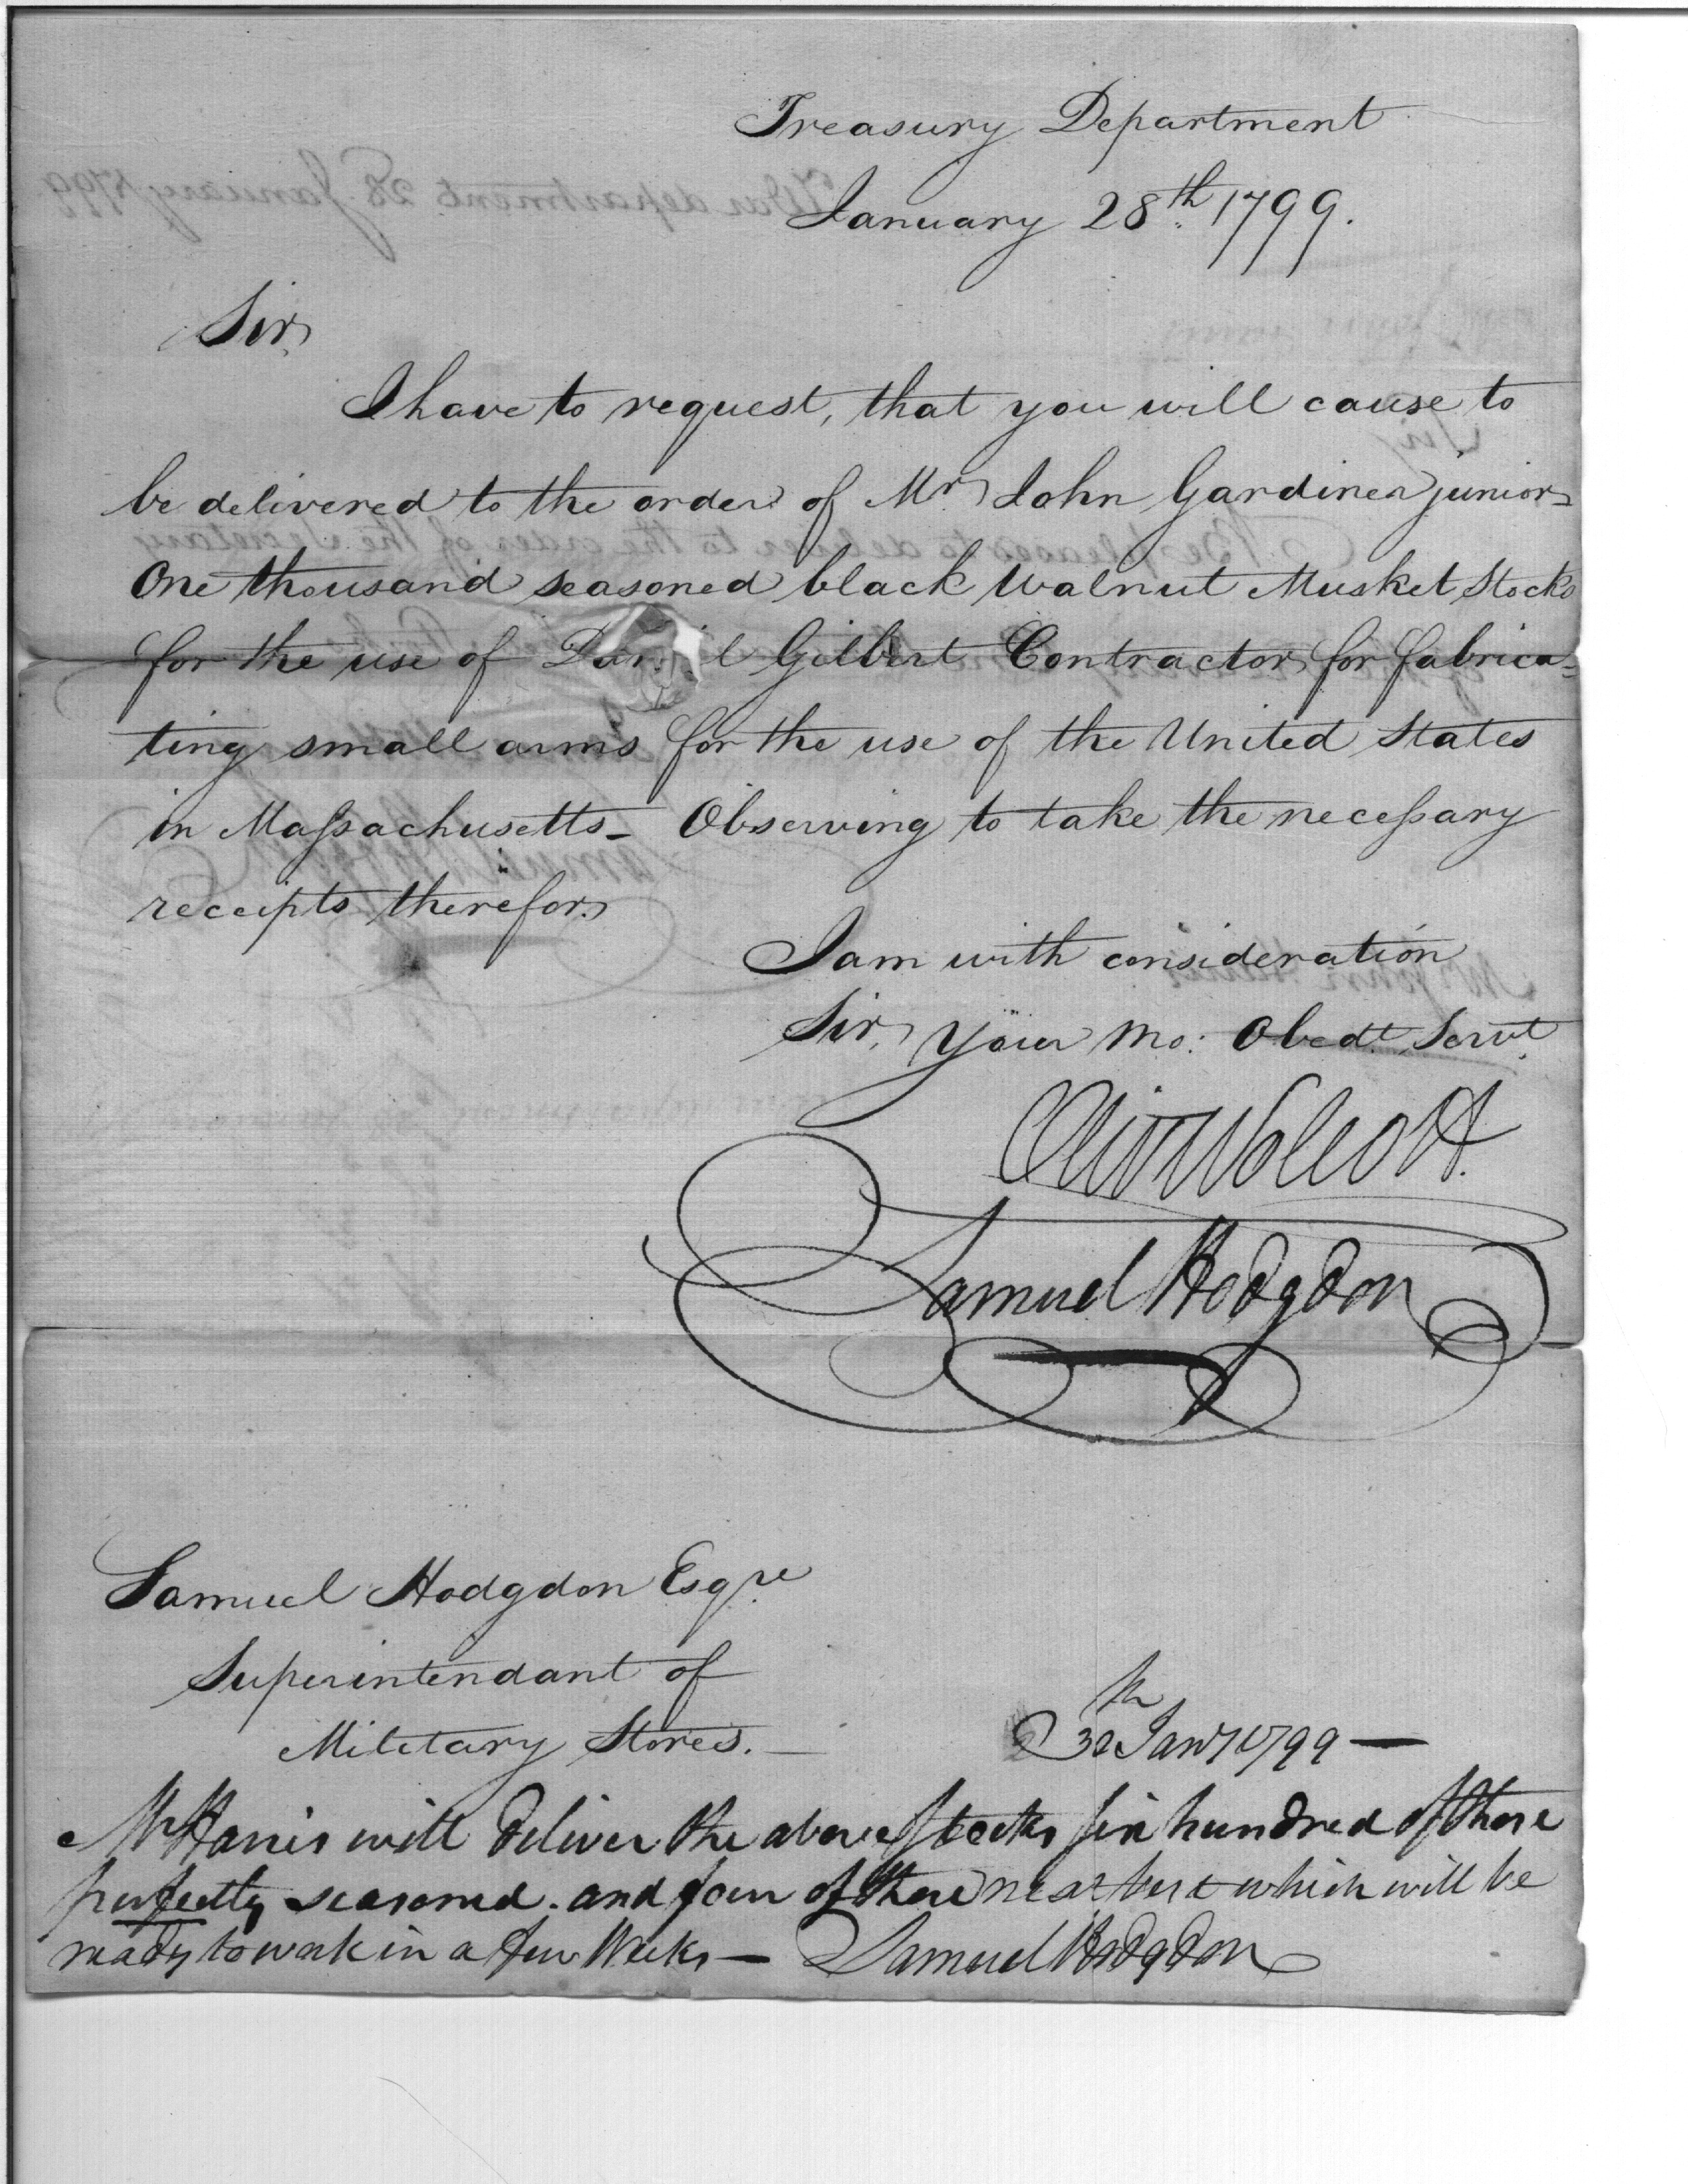 Treasury Department
January 28th 1799.
Sir,
I have to request, that you will cause to
be delivered to the order of Mr John Gardiner junior
One thousand seasoned black Walnut Musket Stocks
for the use of Gilbert Contractor for fabrica-
ting small arms for the use of the United States
in Massachusetts_ Observing to take the necessary
receipts therefor.
I am with consideration
Sir, Your Mo: Obedt. Servt.
Oliv Wolcott.
Samuel Hodgdon
Samuel Hodgdon Esqre
Superintendant of
Military Stores. —
30th Jany 1799 —
Mr Harris will deliver the above stocks six hundred of those
perfectly seasoned. and four of the next best which will be
ready to work in a few Weeks — Samuel Hodgdon